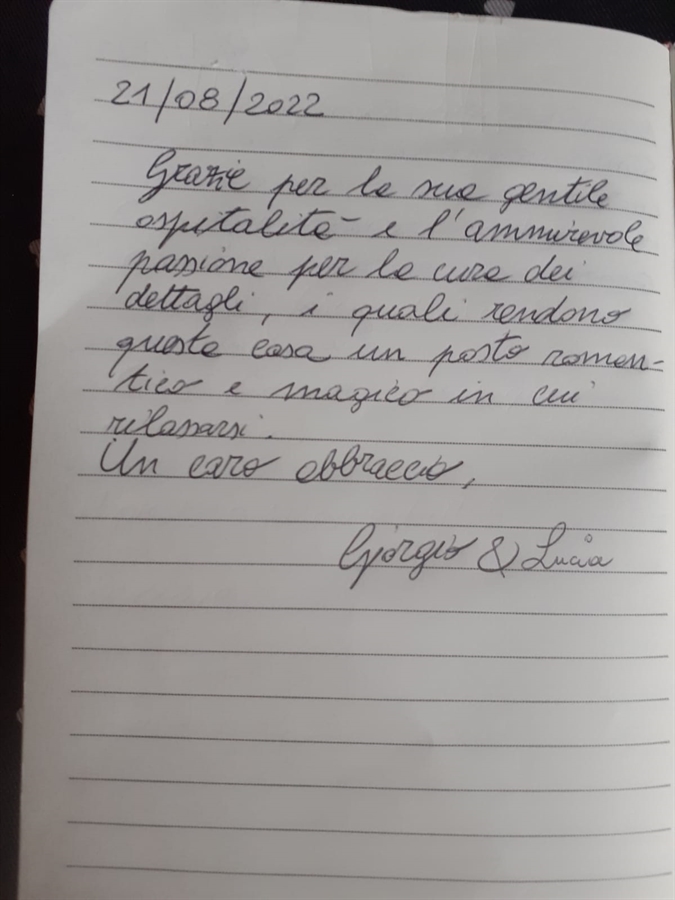 21/08/2022
Grazie per la sua gentile
ospitalità e l'ammirevole
passione per la cura dei
dettagli, i quali rendono
questa casa un posto roman-
tico e magico in cui
rilassarsi.
Un caro abbraccio,
Giorgio & Lucia